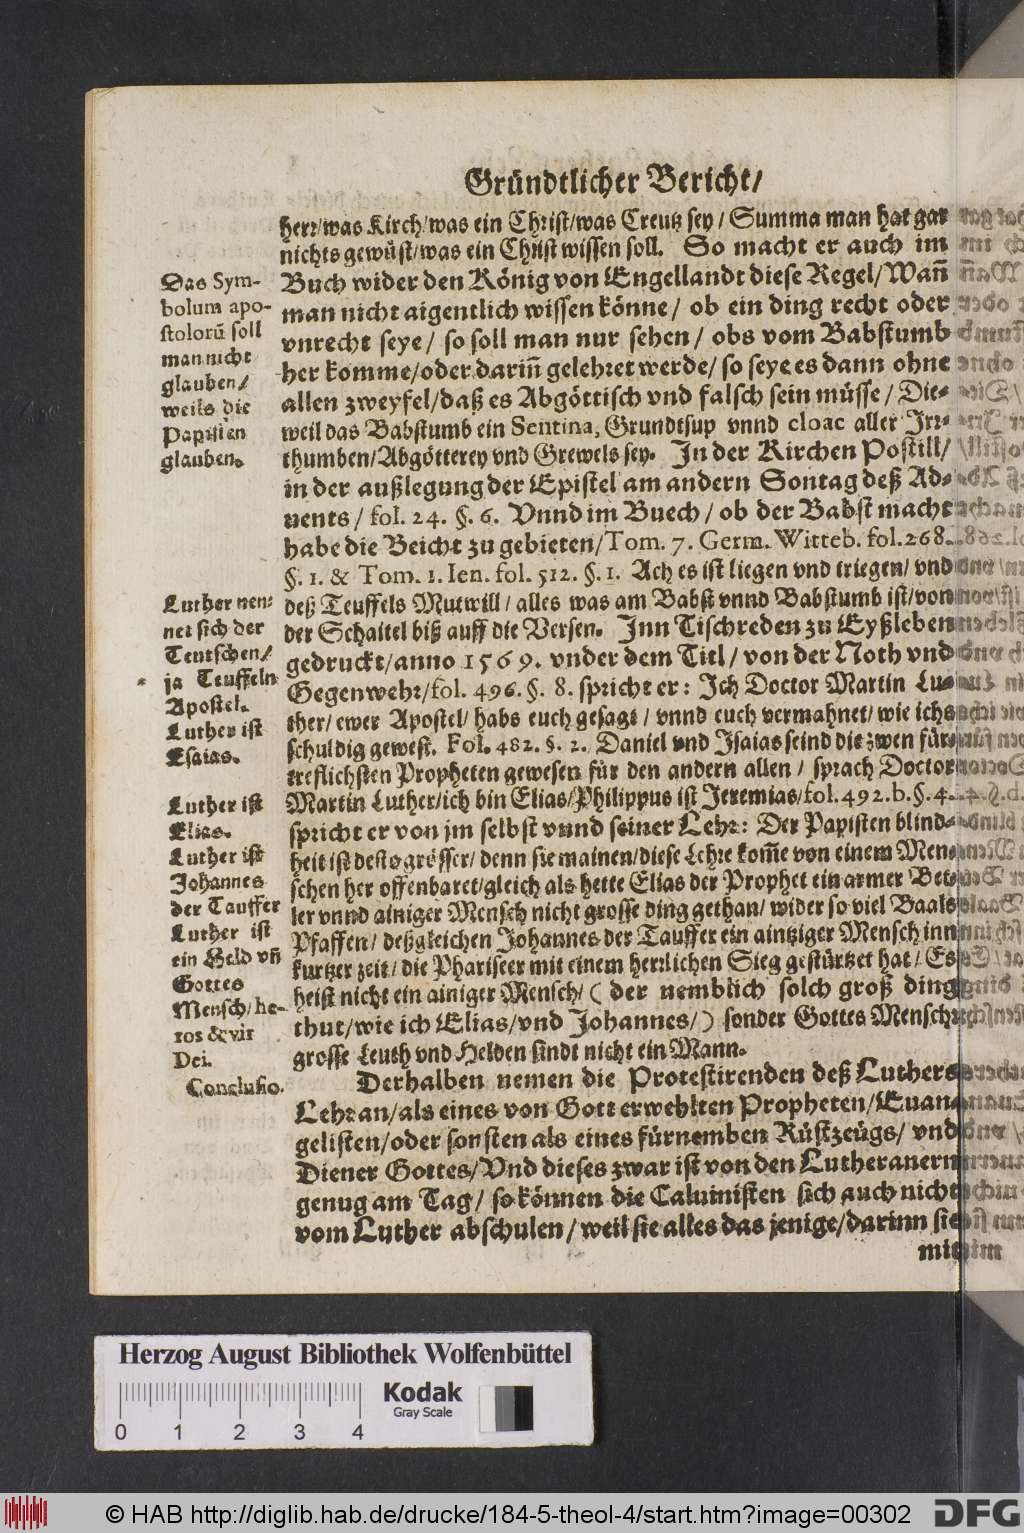 Gründtlicher Bericht/
herr/was Kirch/was ein Christ/was Creutz sey/ Summa man hat gar
nichts gewüst/was ein Christ wissen soll. So macht er auch im
Buch wider den König von Engellandt diese Regel/Wañ
man nicht aigentlich wissen könne/ ob ein ding recht oder
vnrecht seye/ so soll man nur sehen/ obs vom Babstumb
her komme/oder dariñ gelehret werde/ so seye es dann ohne
allen zweyfel/daß es Abgöttisch vnd falsch sein müsse/ Die-
weil das Babstumb ein Sentina, Grundtsup vnnd cloac aller Irr-
thumben/Abgötterey vnd Grewels sey. In der Kirchen Postill/
in der außlegung der Epistel am andern Sontag deß Ad-
uents/ fol. 24. §. 6. Vnnd im Buech/ ob der Babst macht
habe die Beicht zu gebieten/Tom. 7. Germ. Witteb. fol. 268.
§. 1. & Tom. 1. Ien. fol. 512. §. 1. Ach es ist liegen vnd triegen/ vnd
deß Teuffels Mutwill/ alles was am Babst vnnd Babstumb ist/von
der Schaitel biß auff die Versen. Inn Tischreden zu Eyßleben
gedruckt/anno 1569. vnder dem Titl/ von der Noth vnd
Gegenwehr/fol. 496. §. 8. spricht er: Ich Doctor Martin Lu-
ther/ ewer Apostel/ habs euch gesagt/ vnnd euch vermahnet/ wie ichs
schuldig gewest. Fol. 482. §. 2. Daniel vnd Isaias seind die zwen für-
treflichsten Propheten gewesen für den andern allen/ sprach Doctor
Martin Luther/ich bin Elias/Philippus ist Jeremias/fol. 492. b. §. 4.
spricht er von jm selbst vnnd seiner Lehr: Der Papisten blind-
heit ist desto grösser/ denn sie mainen/diese Lehre kom̃e von einem Men-
schen her offenbaret/gleich als hette Elias der Prophet ein armer Bet-
ler vnnd ainiger Mensch nicht grosse ding gethan/ wider so viel Baals
Pfaffen/ deßgleichen Johannes der Tauffer ein aintziger Mensch inn
kurtzer zeit/ die Phariseer mit einem herrlichen Sieg gestürtzet hat/ Es
heist nicht ein ainiger Mensch/ ( der nemblich solch groß ding
thut/wie ich Elias/vnd Johannes/) sonder Gottes Mensch
grosse Leuth vnd Helden sindt nicht ein Mann.
Derhalben nemen die Protestirenden deß Luthers
Lehr an/als eines von Gott erwehlten Propheten/Euan-
gelisten/oder sonsten als eines fürnemben Rüstzeügs/ vnd
Diener Gottes/Vnd dieses zwar ist von den Lutheranern
genug am Tag/ so können die Caluinisten sich auch nicht
vom Luther abschulen/weil sie alles das jenige/darinn sie
mit
Das Sym-
bolum apo-
stolorũ soll
man nicht
glauben/
weils die
Papisten
glauben.
Luther nen-
net sich der
Teutschen/
ja Teuffeln
Apostel.
Luther ist
Esaias.
Luther ist
Elias.
Luther ist
Johannes
der Tauffer
Luther ist
ein Held vñ
Gottes
Mensch/ he-
ros & vir
Dei.
Conclusio.
Herzog August Bibliothek Wolfenbüttel
Kodak
Gray Scale
0 1 2 3 4
© HAB http://diglib.hab.de/drucke/184-5-theol-4/start.htm?image=00302
DFG